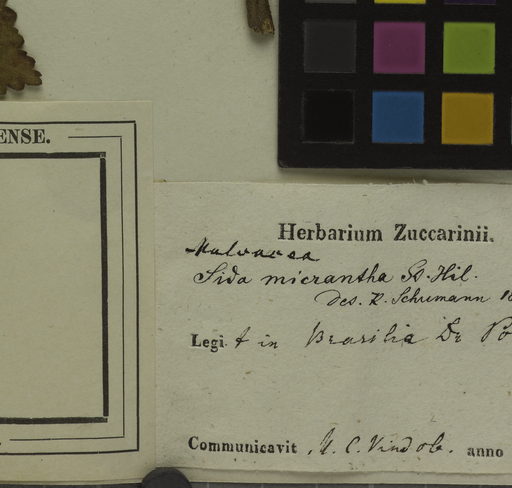 ENSE.
Herbarium Zuccarinii.
Malvacea
Sida micrantha St. Hil.
Des. K. Schumann 18
Legit in Brasilia Dr Po
Communicavit M. C. Vindob. anno